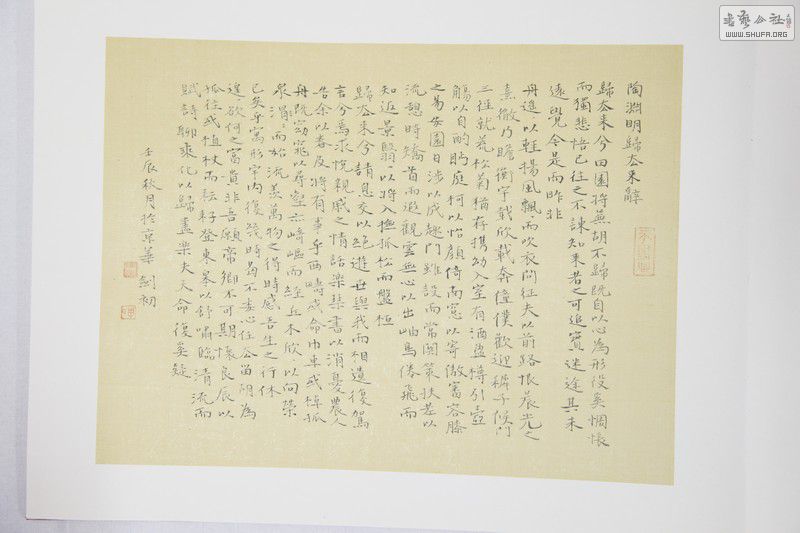 陶淵明歸去來辭
歸去來兮田園將蕪胡不歸既自以心為形役奚惆悵
而獨悲悟已往之不諫知來者之可追實迷途其未
遠覺今是而昨非
舟遙以輕揚風飄而吹衣問征夫以前路恨晨光之
熹微乃瞻衡宇載欣載奔僮僕歡迎稚子候門
三徑就荒松菊猶存攜幼入室有酒盈樽引壺
觴以自酌眄庭柯以怡顏倚南窗以寄傲審容膝
之易安園日涉以成趣門雖設而常關策扶老以
流憩時矯首而遐觀雲無心以出岫鳥倦飛而
知還景翳以將入撫孤松而盤桓
歸去來兮請息交以絕遊世與我而相遺復駕
言兮焉求悅親戚之情話樂琴書以消憂農人
告余以春及將有事乎西疇或命巾車或棹孤
舟既窈窕以尋壑亦崎嶇而經丘木欣以向榮
泉涓而始流羨萬物之得時感吾生之行休
已矣乎寓形宇內復幾時曷不委心任去留胡為
遑欲何之富貴非吾願帝鄉不可期懷良辰以
孤往或植杖而耘耔登東皋以舒嘯臨清流而
賦詩聊乘化以歸盡樂夫天命復奚疑
壬辰秋月於京華 劍初
書藝公社
WWW.SHUFA.ORG